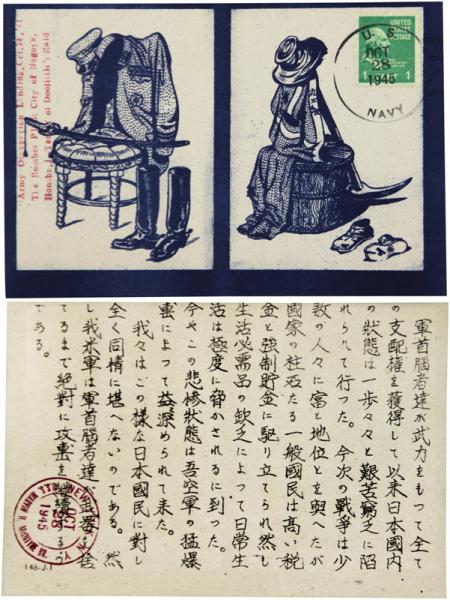 "Army Occupation Landing, Oct. 28, '45
The Bomber Plant City of Nagoya,
Target of Doolittle's Raid
UNITED STATES
POSTAGE
1 1
U. S.
OCT
28
1945
NAVY
軍首腦者達が武力をもつて全て
の支配權を獲得して以来日本國内
の狀態は一歩々々と艱苦窮乏に陥
れられて行つた。今次の戰爭は少
数の人々に富と地位とを與へたが
國家の柱石たる一般國民は高い税
金と強制貯金に駆り立てられ然し
生活必需品の欠乏によつて日常生
活は極度に脅かされるに到つた。
今やこの悲惨狀態は吾空軍の猛爆
撃によつて益々深められて来た。
我々はこの様な日本國民に對し
全く同情に堪へないのである。然
し我米軍は軍首腦者達が武器を捨
てるまで絶對に攻撃を継續するの
である。
OCT
28
1945
146-J-1